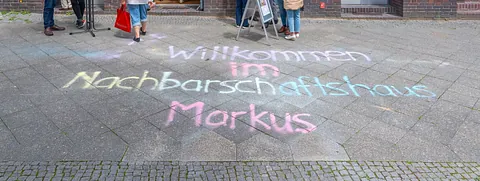 Willkommen
im
Nachbarschaftshaus
Markus